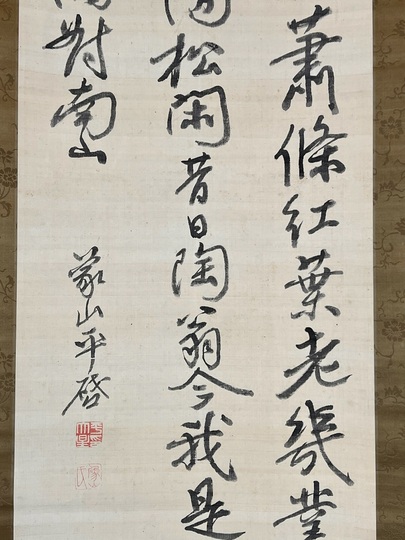 蕭條紅葉老幾
松閑昔日陶翁今我是
對南山
蒙山平啓